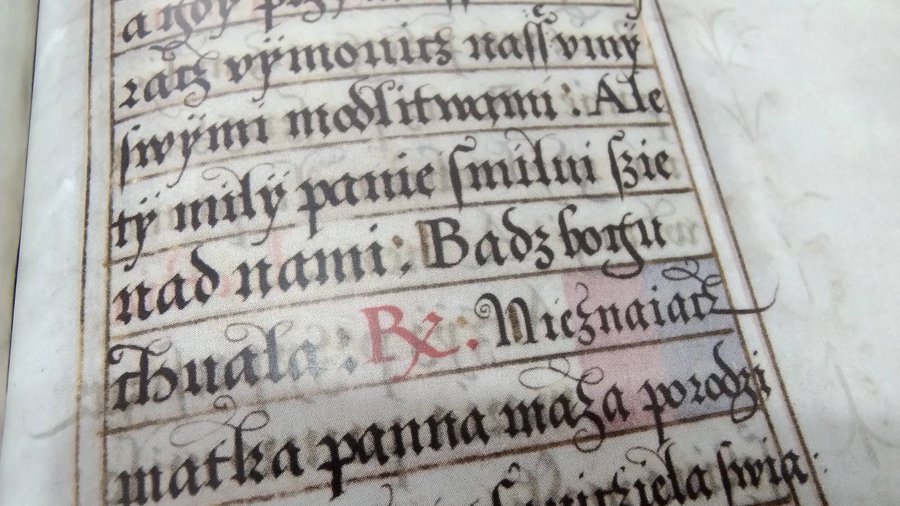 a gdy
racz vÿmouicz nass vmÿ
swÿmi modlitwami: Ale
tÿ milÿ panie smilui szie
nad nami: Badz bogu
chuala: ꝶ: Nieznaiacz
matka panna maza porodzi
swia: